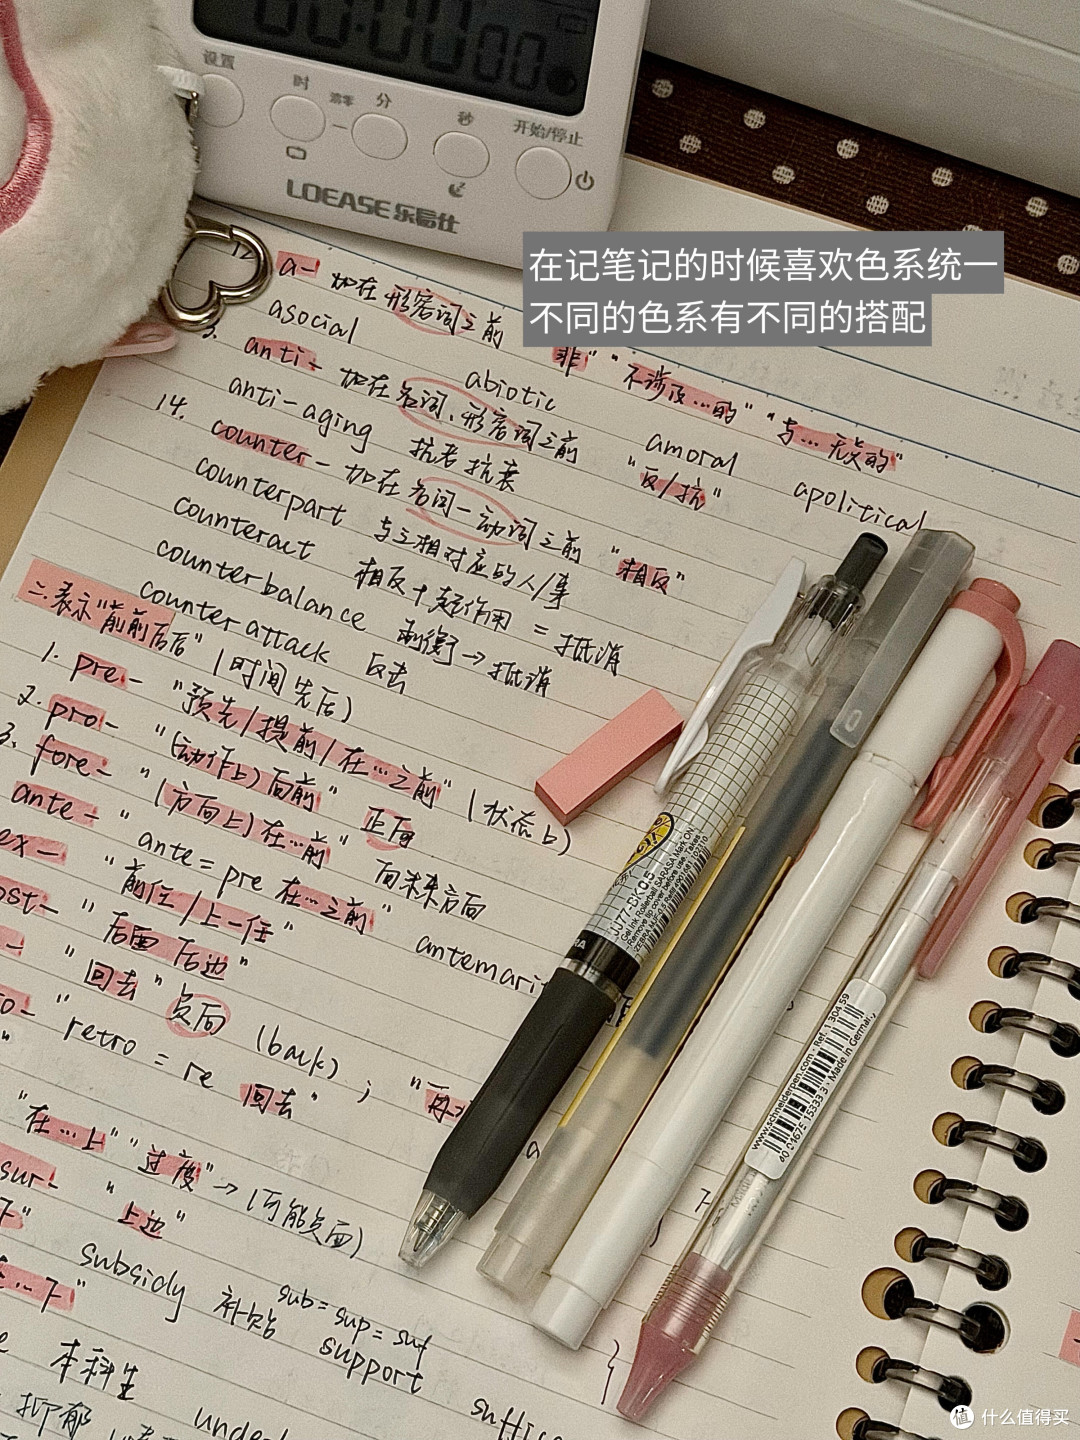 00:00 00
设置
时
清零
分
秒
开始/停止
LOEASE 乐易仕
在记笔记的时候喜欢色系统一
不同的色系有不同的搭配
12 a- 加在形容词之前 "非" "不涉及…的" "与…无关的"
asocial abiotic amoral apolitical
3. anti- 加在名词、形容词之前 "反/抗"
anti-aging 抗老抗衰
14. counter- 加在名词-动词之前 "相反"
counterpart 与之相对应的人/事
counteract 相反+起作用 = 抵消
counterbalance 制衡→抵消
counter attack 反击
二.表示"前前后后" (时间先后)
1. pre- "预先/提前/在…之前" (状态上)
2. pro- "(动作上)向前" 正向
3. fore- "(方向上)在…前" 向未来方向
ante- " ante = pre 在…之前" antemari
ex- "前任/上一任"
ost- "后面 后边"
"回去" 负向 (back) ; "再次
o- "retro = re 回去"
"在…上" "过度" → (可能负面)
sur- "上边"
…下"
subsidy 补贴 sub = sup = suf
support
suffic
本科生
抑郁
under
JJ77-BK 0.5
Gel Ink Rollerball SARASA Mark ON
Remove tip cover before use.
www.schneiderpen.com · Ref. 1 304 59
Made in Germany
什么值得买